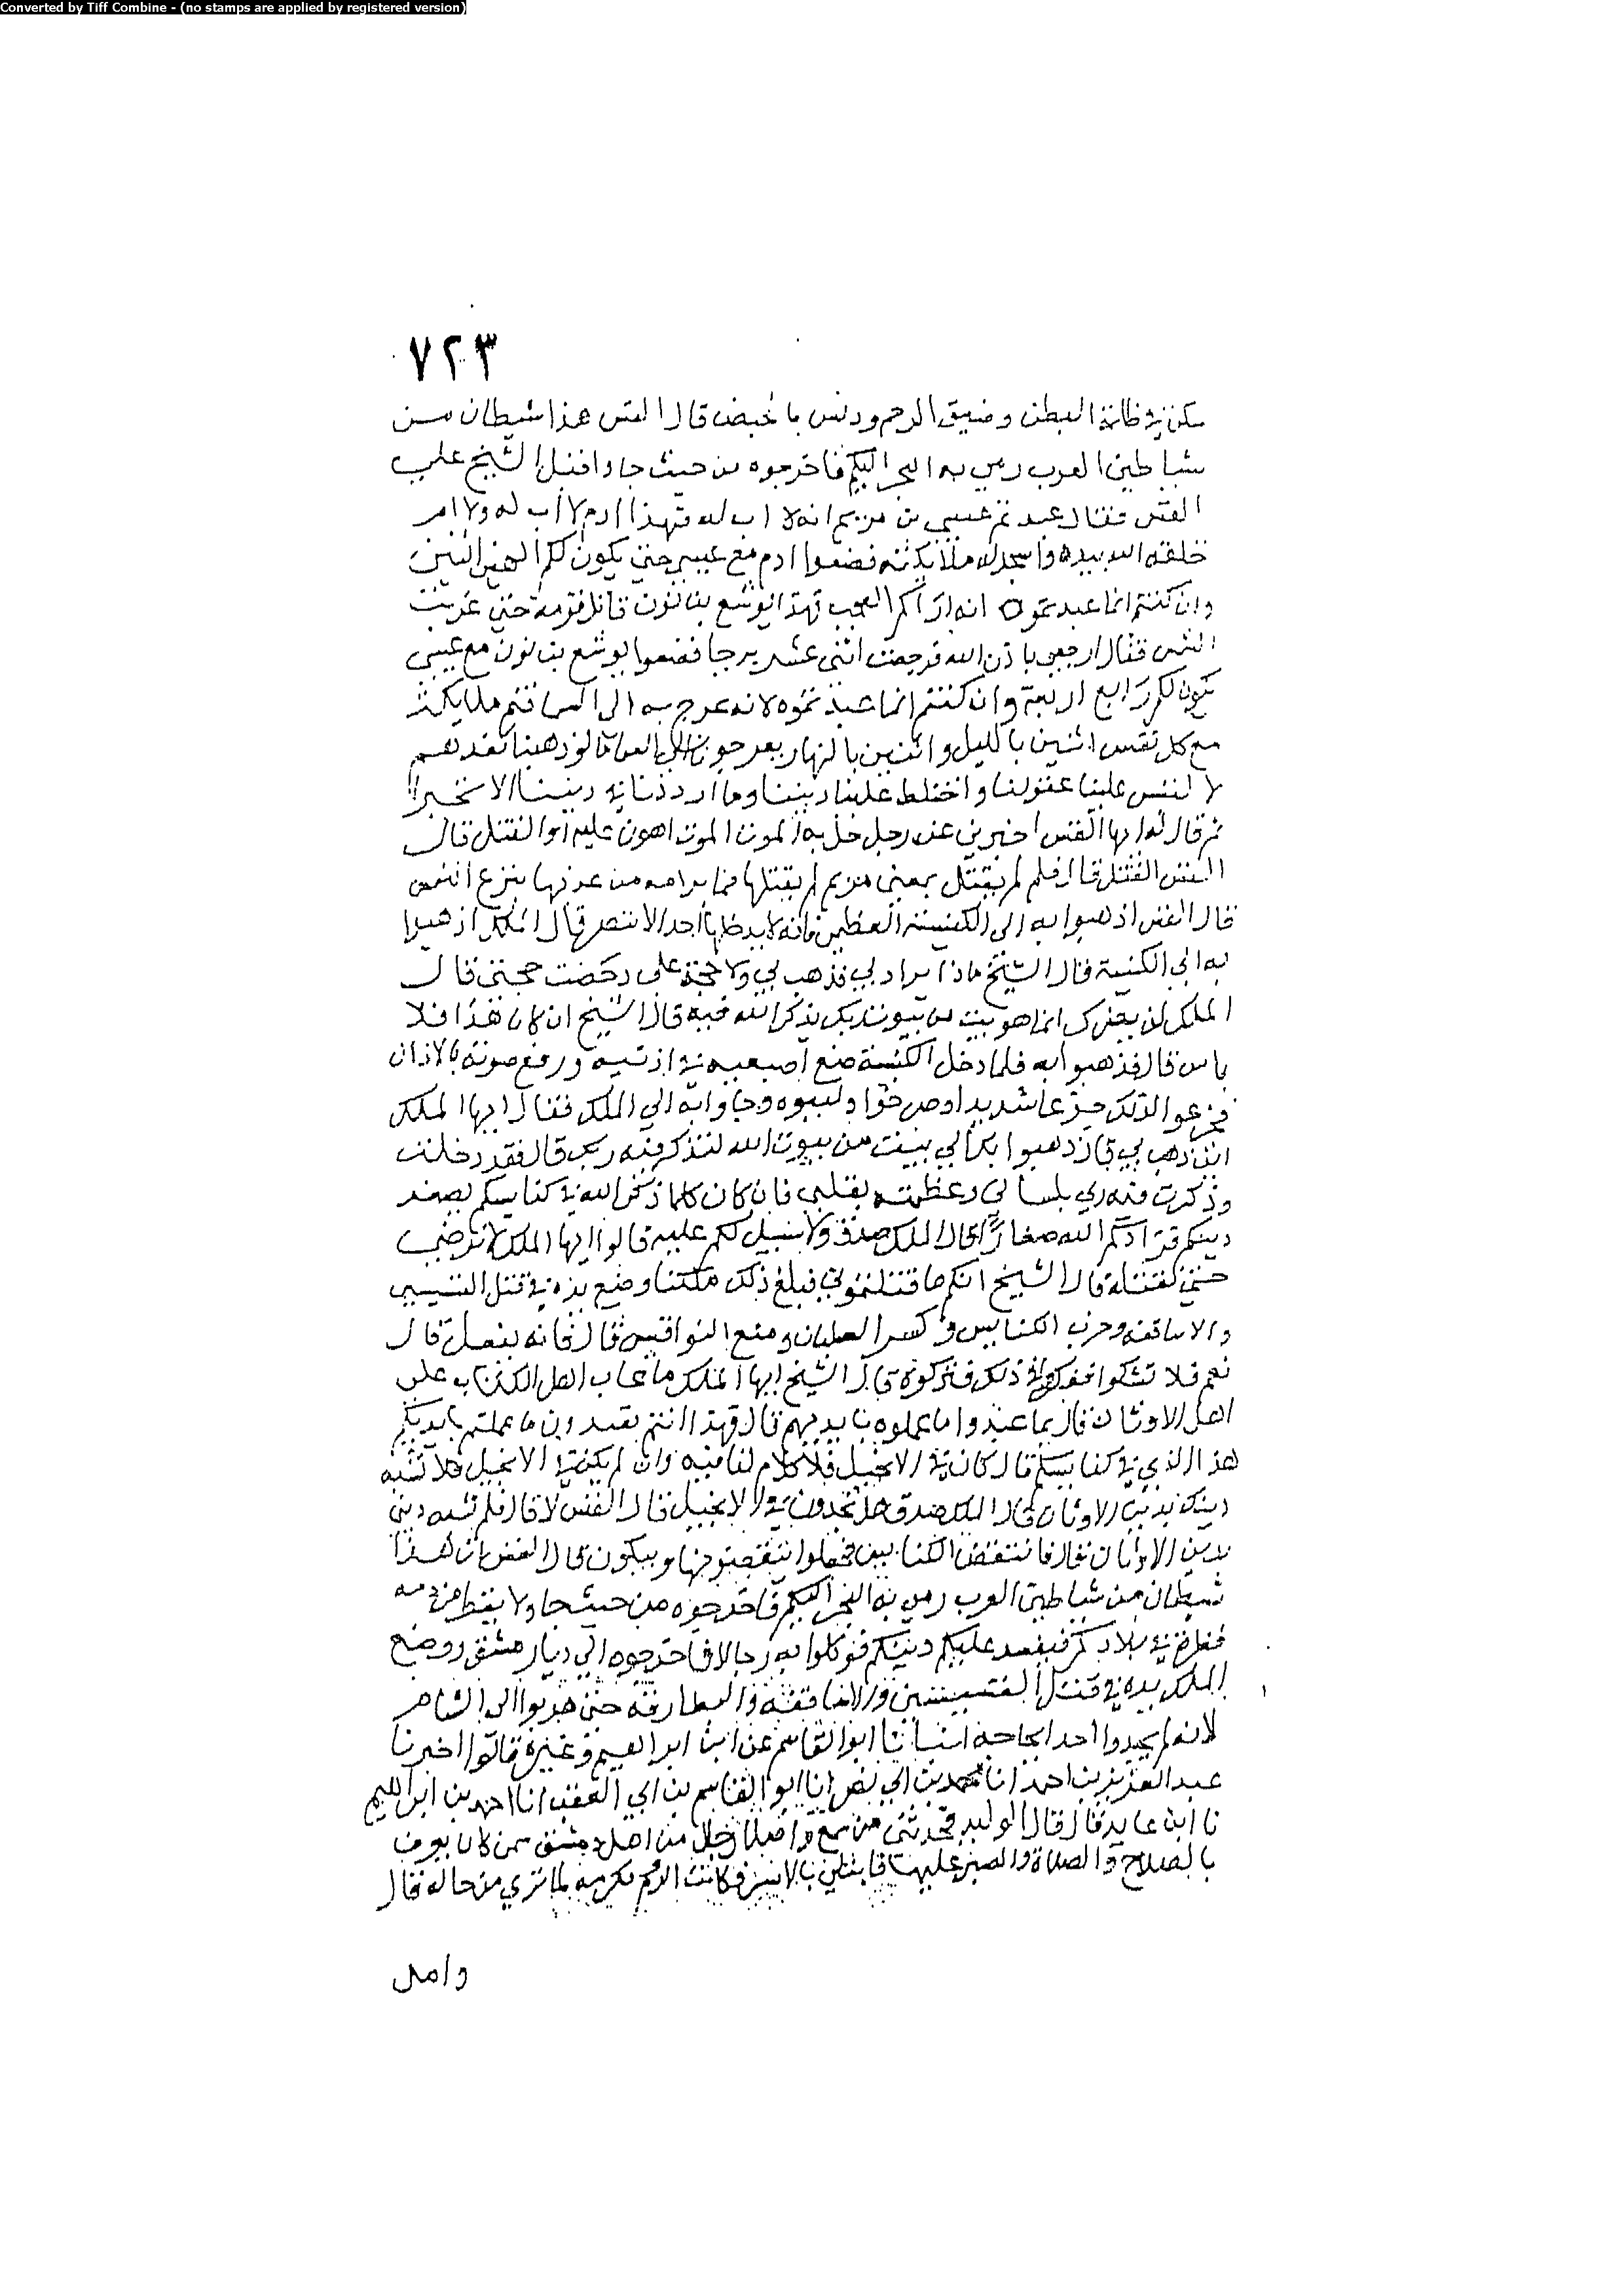 Converted by Tiff Combine - (no stamps are applied by registered version)
٧٢٣
سكن في ظلمة البطن وضيق الرحم ودنس بالحيض قال القس هذا شيطان من
شياطين العرب رمى به البحر اليكم فاخرجوه من حيث جاء واقبل الشيخ على
القس فقال عبدتم عيسى بن مريم انه لا اب له فهذا ادم لا أب له ولا ام
خلقه الله بيده واسجد له ملائكته فضموا ادم مع عيسى حتى يكون لكم الهين اثنين
وان كنتم انما عبدتموه انه اراكم العجب فهذا يوشع بن نون قاتل قومه حتى غربت
الشمس فقال ارجعي باذن الله فرجعت اثنى عشر برجا فضموا يوشع بن نون مع عيسى
يكون لكم رابع اربعة وان كنتم انما عبدتموه لانه عرج به الى السما فثم ملايكة
مع كل نفس اثنين بالليل واثنين بالنهار يعرجون الى السما ما لو ذهبنا نعدهم
لالتبس علينا عقولنا واختلط علينا ديننا وما ازددنا في ديننا الا تحيرا
ثم قال له ايها القس اخبرني عن رجل حل به الموت الموت اهون عليه او القتل قال
القس القتل قال فلم لم يقتل يعني مريم لم يقتلها فما برامه من عذبها بنزع النفس
قال القس اذهبوا به الى الكنيسة العظمى فانه لا يدخلها احد الا تنصر قال الملك اذهبوا
به الى الكنيسة قال الشيخ ماذا يراد بي يذهب بي ولا حجة على دحضت حجتي قال
الملك لن يضرك انما هو بيت من بيوت ربك يذكر الله فيه قال الشيخ ان كان هذا فلا
باس قال فذهبوا به فلما دخل الكنيسة وضع اصبعيه في اذنيه ورفع صوته بالاذان
فجزعوا لذلك جزعا شديدا وصرخوا ولببوه وجاوا به الى الملك فقال ايها الملك
اين ذهب بي قال ذهبوا بك الى بيت من بيوت الله لتذكر فيه ربك قال فقد دخلت
وذكرت فيه ربي بلساني وعظمته بقلبي فان كان كلما ذكر الله في كنايسكم يصغر
دينكم فزادكم الله صغارا قال الملك صدق ولا سبيل لكم عليه قالوا ايها الملك لا نرضى
حتى نقتله قال الشيخ انكم متى قتلتموني فبلغ ذلك ملكنا وضع يده في قتل القسيسين
والاساقفة وخرب الكنايس وكسر الصلبان ومنع النواقيس قال فانه يفعل قال
نعم فلا تشكوا ففكروا في ذلك فتركوه قال الشيخ ايها الملك ما عاب اهل الكتاب على
اهل الاوثان قال بما عبدوا ما عملوه بايديهم قال فهذا انتم تعبدون ما عملتم بايديكم
هذا الذي في كنايسكم قال كان في الانجيل فلا كلام لنا فيه وان لم يكن في الانجيل فلا تشبه
دينك بدين الاوثان قال الملك صدق هل تجدونه في الانجيل قال القس لا قال فلم تشبه ديني
بدين الاوثان قال فانتقض الكنايس فجعلوا ينقضونها ويبكون قال القس ان هذا
شيطان من شياطين العرب رمى به البحر اليكم فاخرجوه من حيث جا ولا يقطر من دمه
قطرة في بلادكم فيفسد عليكم دينكم فوكلوا به رجالا فاخرجوه الى ديار دمشق ووضع
الملك يده في قتل القسيسين والاساقفة والبطارقة حتى هربوا الى الشام
لانه لم يجدوا احدا يحاجه انبانا ابو القاسم عن ابن ابراهيم وغيره قالوا اخبرنا
عبد العزيز بن احمد انا محمد بن ابي نصر انا ابو القاسم بن ابي العقب انا احمد بن ابراهيم
نا ابن عايد قال قال الوليد فحدثني من سمع واصلا رجل من اهل دمشق ممن كان يعرف
بالصلاح والصلاة والصبر عليها فابتلي بالاسر فكانت الروم تكرمه لما ترى من حاله قال
واصل